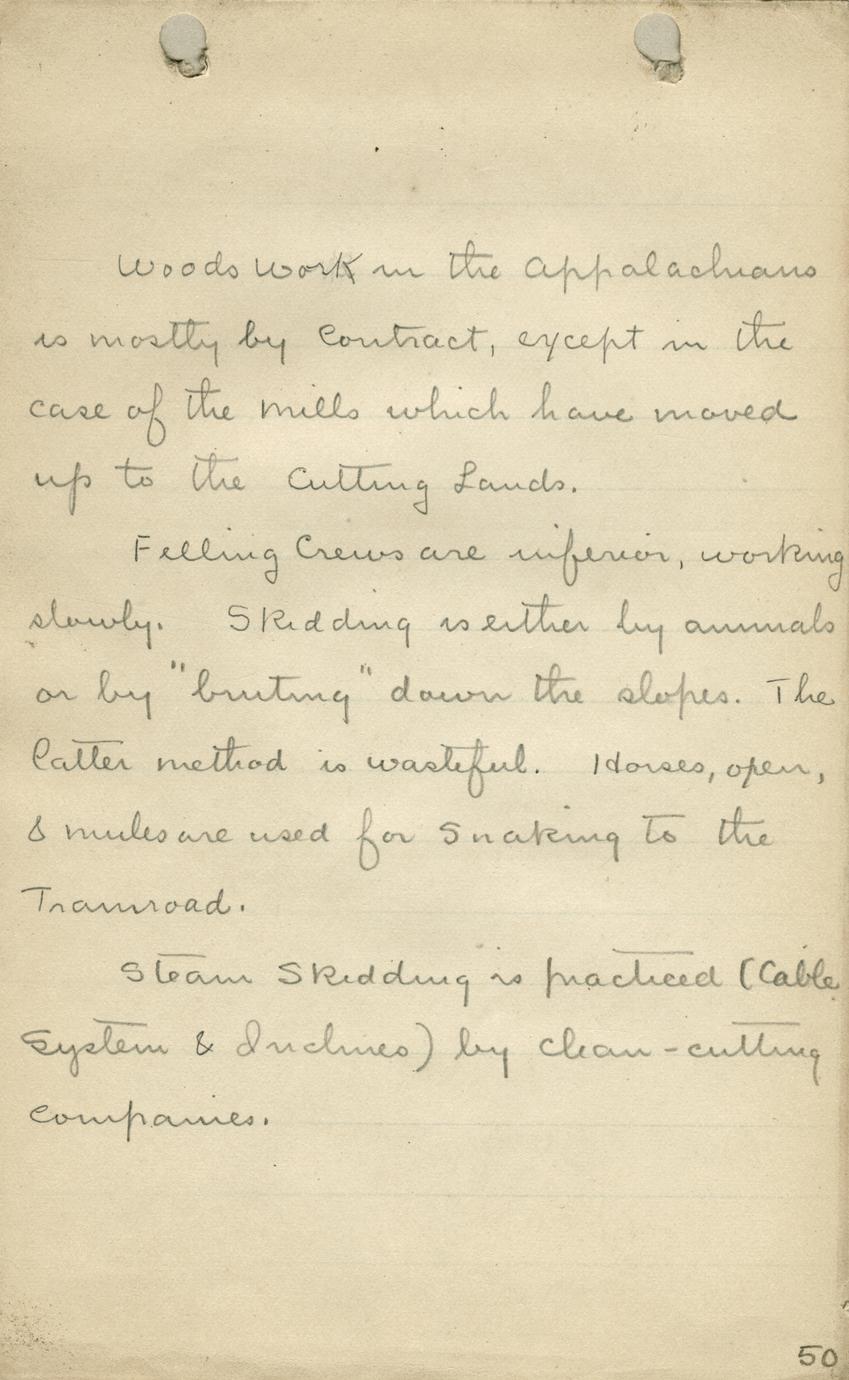 Woods work in the Appalachians
is mostly by Contract, except in the
case of the mills which have moved
up to the Cutting Lands.
Felling Crews are inferior, working
slowly. Skidding is either by animals
or by "bruting" down the slopes. The
latter method is wasteful. Horses, oxen,
& mules are used for Snaking to the
Tramroad.
Steam Skidding is practiced (Cable
System & Inclines) by clean-cutting
companies.
50